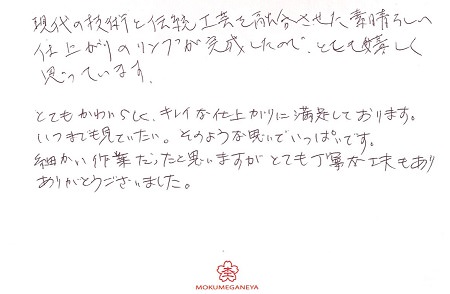 現代の技術と伝統工芸を融合させた素晴らしい
仕上がりのリングが完成したので、とても嬉しく
思っています。
とてもかわいらしく、キレイな仕上がりに満足しております。
いつまでも見ていたい。そのような思いでいっぱいです。
細かい作業だったと思いますがとても丁寧な工夫もあり
ありがとうございました。
MOKUMEGANEYA